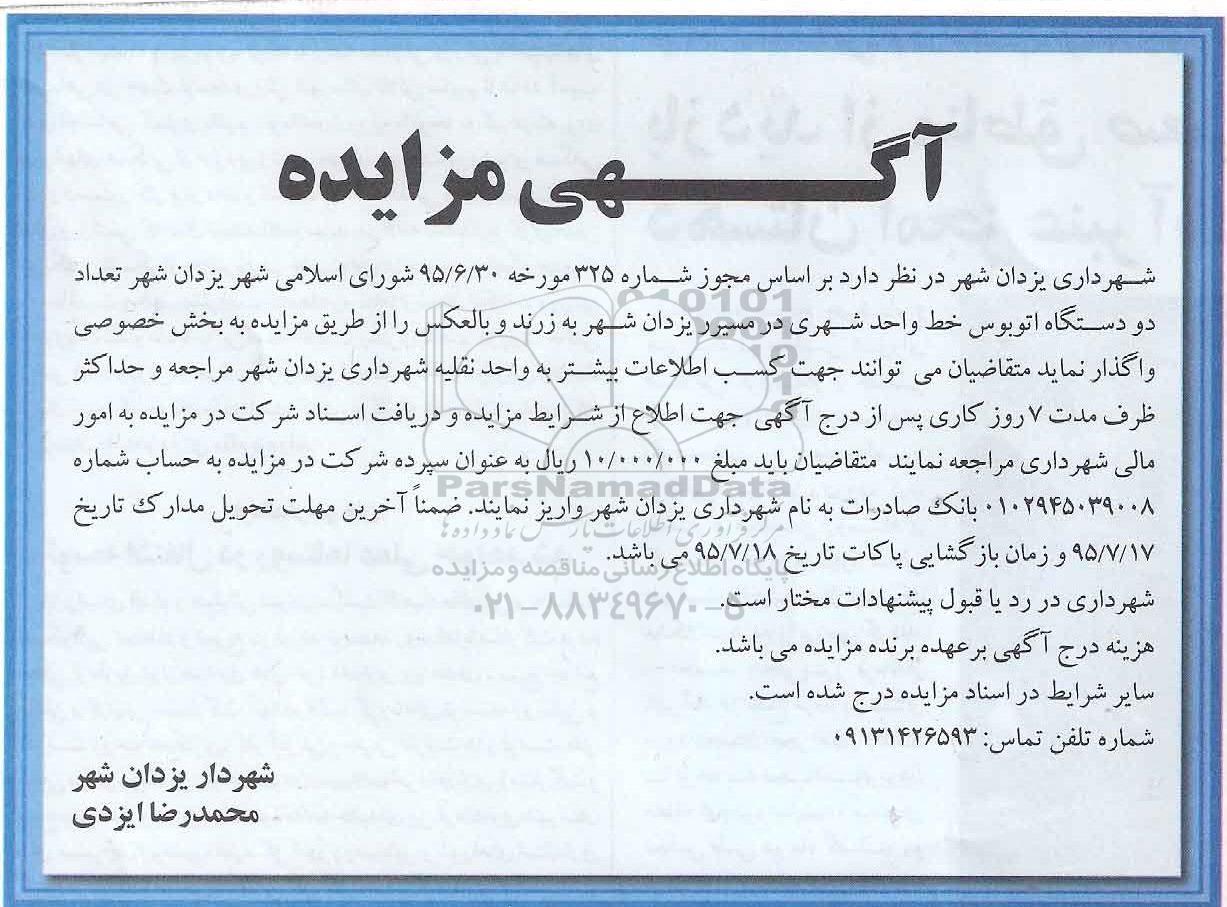 آگهی مزایده
شهرداری یزدان شهر در نظر دارد بر اساس مجوز شماره ۳۲۵ مورخه ۹۵/۶/۳۰ شورای اسلامی شهر یزدان شهر تعداد
دو دستگاه اتوبوس خط واحد شهری در مسیرر یزدان شهر به زرند و بالعکس را از طریق مزایده به بخش خصوصی
واگذار نماید متقاضیان می توانند جهت کسب اطلاعات بیشتر به واحد نقلیه شهرداری یزدان شهر مراجعه و حداکثر
ظرف مدت ۷ روز کاری پس از درج آگهی جهت اطلاع از شرایط مزایده و دریافت اسناد شرکت در مزایده به امور
مالی شهرداری مراجعه نمایند متقاضیان باید مبلغ ۱۰/۰۰۰/۰۰۰ ریال به عنوان سپرده شرکت در مزایده به حساب شماره
ParsNamadData
۰۱۰۲۹۴۵۰۳۹۰۰۸ بانک صادرات به نام شهرداری یزدان شهر واریز نمایند. ضمناً آخرین مهلت تحویل مدارک تاریخ
مرکز فرآوری اطلاعات پارس نماد داده ها
۹۵/۷/۱۷ و زمان بازگشایی پاکات تاریخ ۹۵/۷/۱۸ می باشد.
پایگاه اطلاع رسانی مناقصه و مزایده
شهرداری در رد یا قبول پیشنهادات مختار است.
۰۲۱-۸۸۳۴۹۶۷۰-۵
هزینه درج آگهی برعهده برنده مزایده می باشد.
سایر شرایط در اسناد مزایده درج شده است.
شماره تلفن تماس: ۰۹۱۳۱۴۲۶۵۹۳
شهردار یزدان شهر
محمدرضا ایزدی